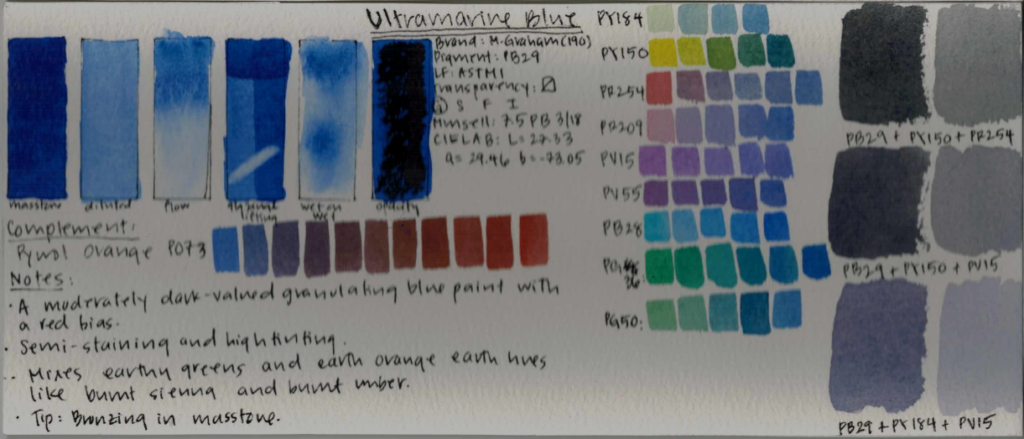 Ultramarine Blue
Brand: M. Graham (190)
Pigment: PB29
LF: ASTM I
Transparency:
S F I
Munsell: 7.5 PB 3/18
CIELAB: L = 27.33
a = 29.46 b = -73.05
masstone
diluted
flow
glazing
lifting
wet on
wet
opacity
Complement:
Pyrrol Orange PO73
Notes:
· A moderately dark-valued granulating blue paint with
a red bias.
· Semi-staining and high tinting.
· Mixes earthy greens and earth orange earth hues
like burnt sienna and burnt umber.
· Tip: Bronzing in masstone.
PY184
PY150
PR254
PR209
PV15
PV55
PB28
36
PG50:
PB29 + PY150 + PR254
PB29 + PY150 + PV15
PB29 + PY184 + PV15